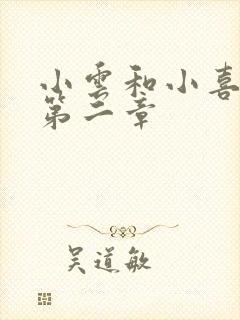 小雲和小喜
第二章
吴道敏